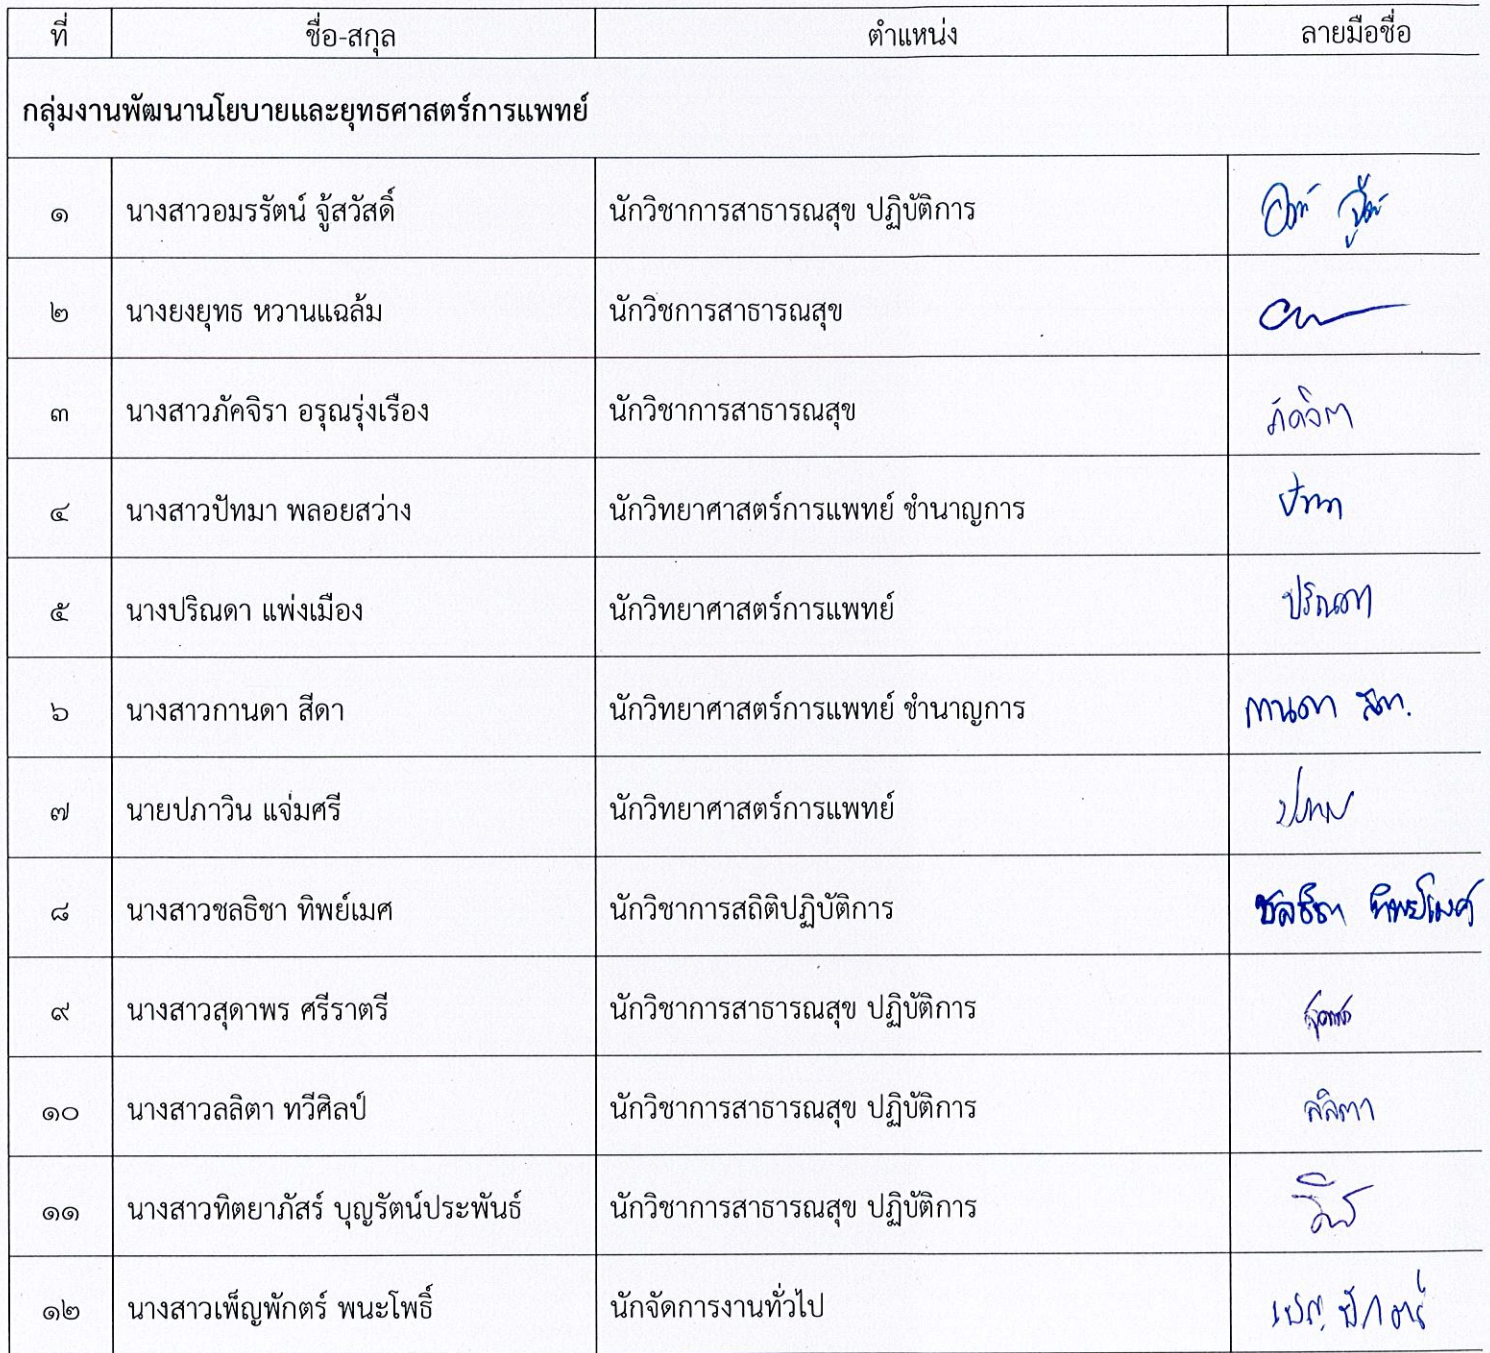 ที่ ชื่อ-สกุล ตำแหน่ง ลายมือชื่อ
กลุ่มงานพัฒนานโยบายและยุทธศาสตร์การแพทย์
๑ นางสาวอมรรัตน์ จู้สวัสดิ์ นักวิชาการสาธารณสุข ปฏิบัติการ
๒ นางยงยุทธ หวานแฉล้ม นักวิชการสาธารณสุข
๓ นางสาวภัคจิรา อรุณรุ่งเรือง นักวิชาการสาธารณสุข ภัคจิรา
๔ นางสาวปัทมา พลอยสว่าง นักวิทยาศาสตร์การแพทย์ ชำนาญการ ปัทมา
๕ นางปริณดา แพ่งเมือง นักวิทยาศาสตร์การแพทย์ ปริณดา
๖ นางสาวกานดา สีดา นักวิทยาศาสตร์การแพทย์ ชำนาญการ กานดา สีดา.
๗ นายปภาวิน แจ่มศรี นักวิทยาศาสตร์การแพทย์
๘ นางสาวชลธิชา ทิพย์เมศ นักวิชาการสถิติปฏิบัติการ ชลธิชา ทิพย์เมศ
๙ นางสาวสุดาพร ศรีราตรี นักวิชาการสาธารณสุข ปฏิบัติการ
๑๐ นางสาวลลิตา ทวีศิลป์ นักวิชาการสาธารณสุข ปฏิบัติการ ลลิตา
๑๑ นางสาวทิตยาภัสร์ บุญรัตน์ประพันธ์ นักวิชาการสาธารณสุข ปฏิบัติการ
๑๒ นางสาวเพ็ญพักตร์ พนะโพธิ์ นักจัดการงานทั่วไป เพ็ญพักตร์